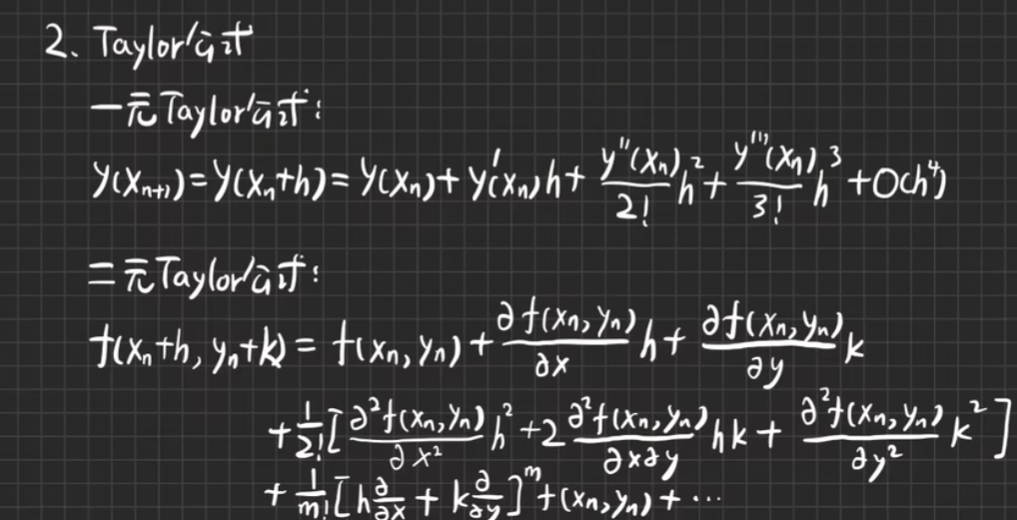 2、Taylor公式
一元Taylor公式：
y(xₙ₊₁)=y(xₙ+h)=y(xₙ)+y′(xₙ)h+\frac{y″(xₙ)}{2!}h²+\frac{y‴(xₙ)}{3!}h³+O(h⁴)
二元Taylor公式：
f(xₙ+h, yₙ+k)=f(xₙ,yₙ)+\frac{∂f(xₙ,yₙ)}{∂x}h+\frac{∂f(xₙ,yₙ)}{∂y}k
+\frac{1}{2!}[\frac{∂²f(xₙ,yₙ)}{∂x²}h²+2\frac{∂²f(xₙ,yₙ)}{∂x∂y}hk+\frac{∂²f(xₙ,yₙ)}{∂y²}k²]
+\frac{1}{m!}[h\frac{∂}{∂x}+k\frac{∂}{∂y}]^m f(xₙ,yₙ)+⋯